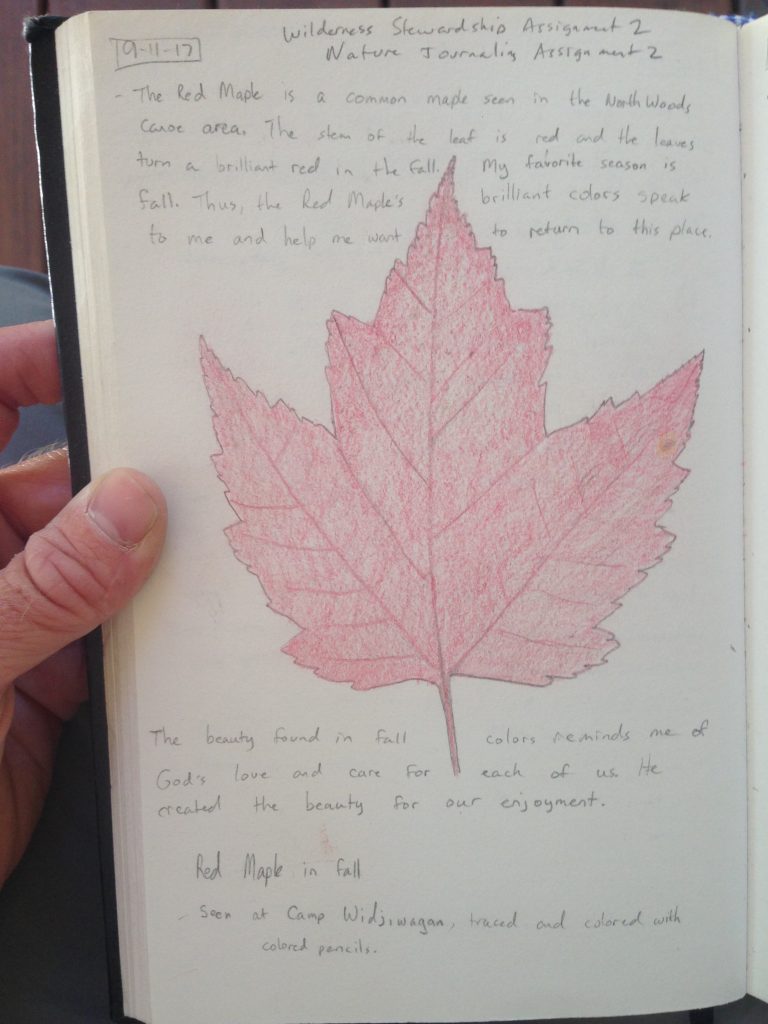 9-11-17
Wilderness Stewardship Assignment 2
Nature Journaling Assignment 2
- The Red Maple is a common maple seen in the North Woods
Canoe area. The stem of the leaf is red and the leaves
turn a brilliant red in the fall. My favorite season is
fall. Thus, the Red Maple's brilliant colors speak
to me and help me want to return to this place.
The beauty found in fall colors reminds me of
God's love and care for each of us. He
created the beauty for our enjoyment.
Red Maple in fall
- Seen at Camp Widjiwagan, traced and colored with
colored pencils.